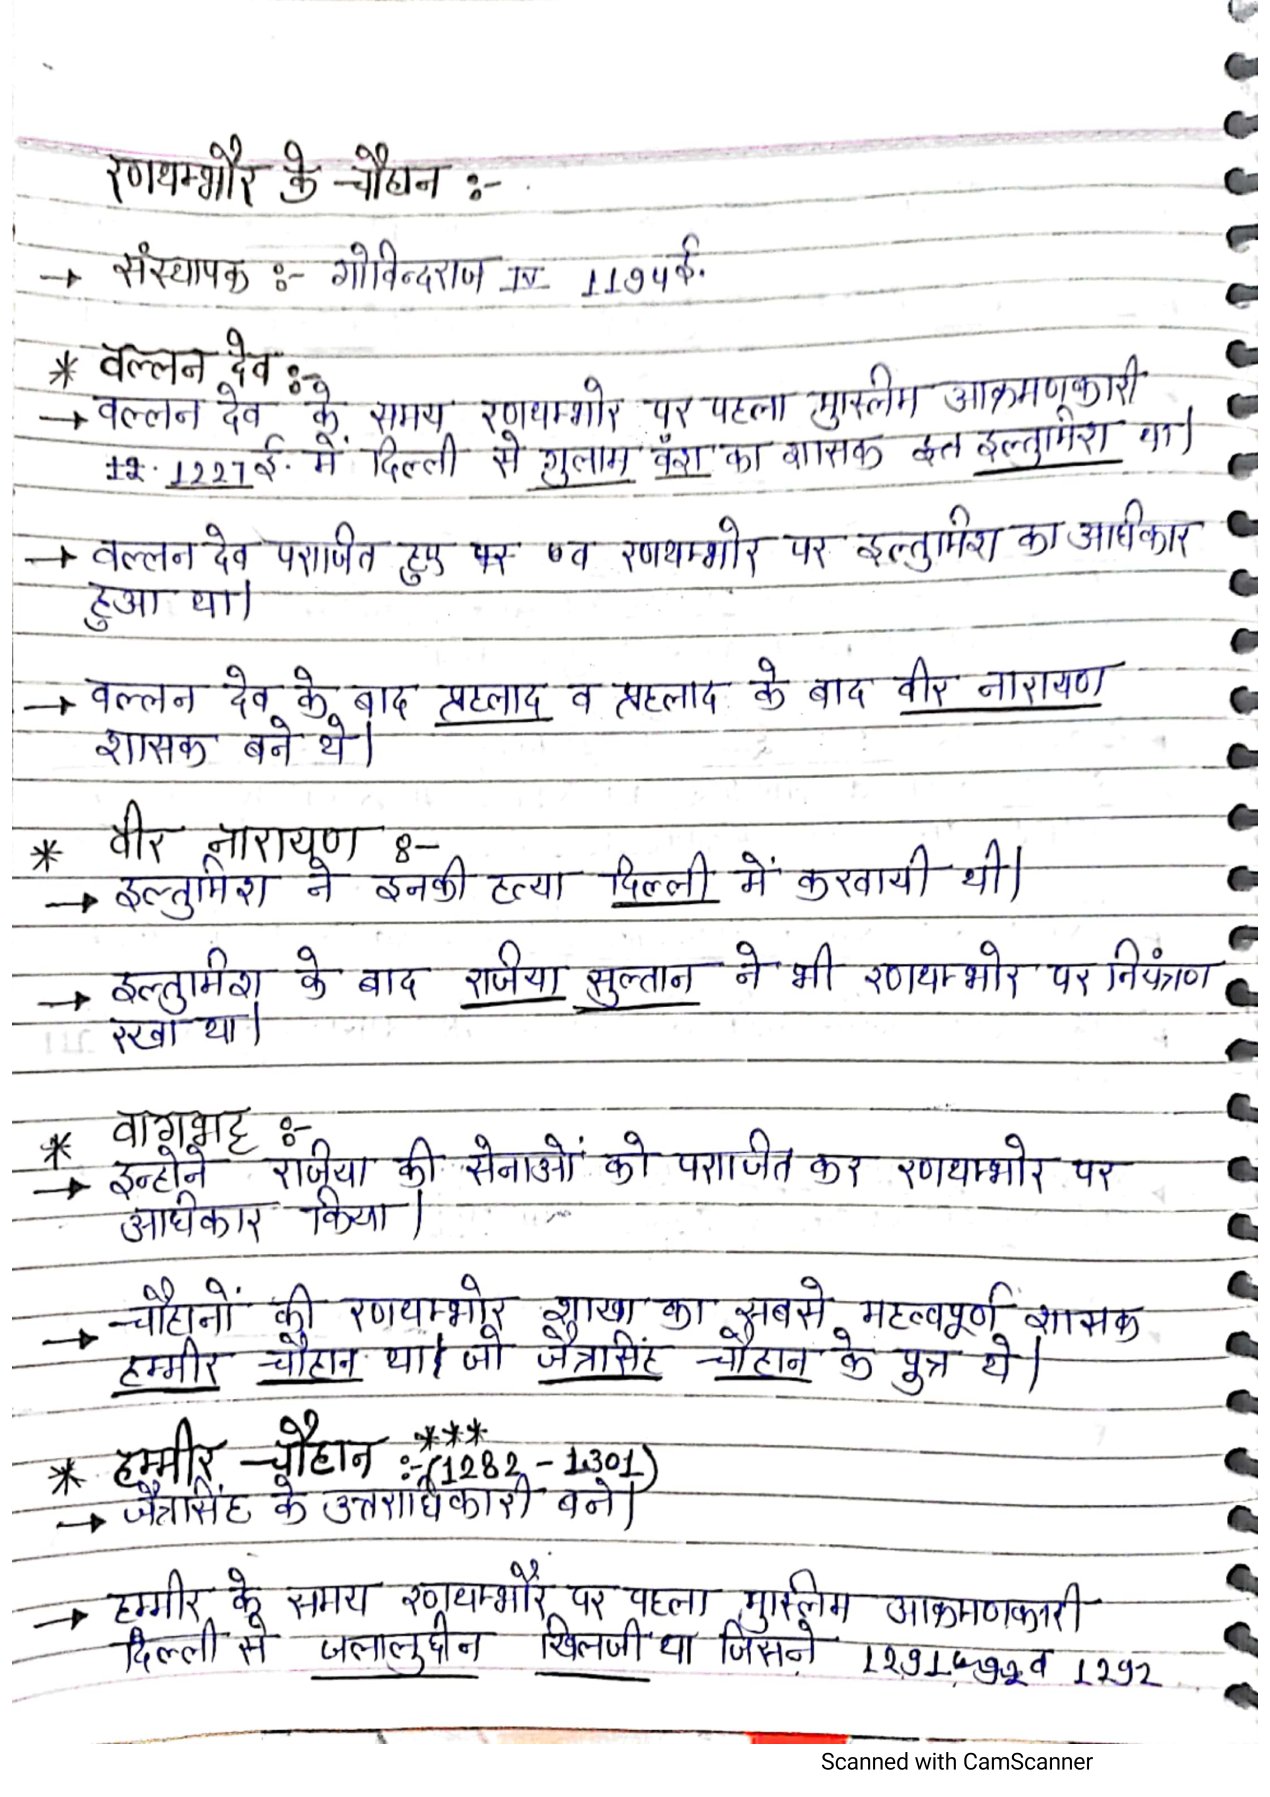 रणथम्भौर के चौहान :-
→ संस्थापक :- गोविन्दराज IV 1194ई.
* वल्लन देव :-
→ वल्लन देव के समय रणथम्भोर पर पहला मुस्लिम आक्रमणकारी
1227ई. में दिल्ली से गुलाम वंश का शासक इल्तुमिश था।
→ वल्लन देव पराजित हुए व रणथम्भोर पर इल्तुमिश का अधिकार
हुआ था।
→ वल्लन देव के बाद प्रहलाद व प्रहलाद के बाद वीर नारायण
शासक बने थे।
* वीर नारायण :-
→ इल्तुमिश ने इनकी हत्या दिल्ली में करवायी थी।
→ इल्तुमिश के बाद रजिया सुल्तान ने भी रणथम्भोर पर नियंत्रण
रखा था।
* वागभट्ट :-
→ इन्होने रजिया की सेनाओं को पराजित कर रणथम्भोर पर
अधिकार किया।
→ चौहानों की रणथम्भोर शाखा का सबसे महत्वपूर्ण शासक
हम्मीर चौहान था। जो जैत्रसिंह चौहान के पुत्र थे।
* हम्मीर चौहान :- *** (1282 - 1301)
→ जैत्रसिंह के उत्तराधिकारी बने।
→ हम्मीर के समय रणथम्भौर पर पहला मुस्लिम आक्रमणकारी
दिल्ली से जलालुद्दीन खिलजी था जिसने 1291 व 1292
Scanned with CamScanner